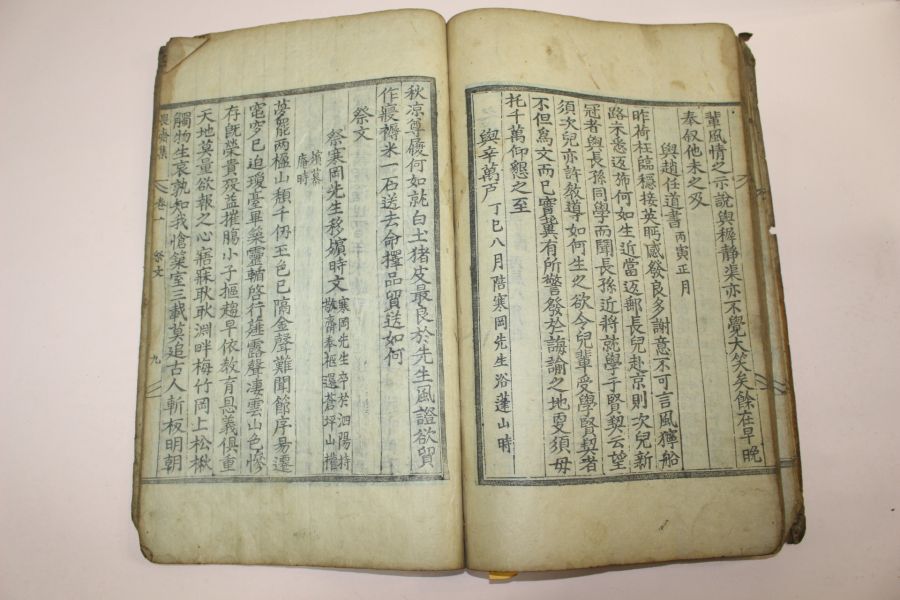 輩風情之示說與穉靜渠亦不覺大笑矣餘在早晚
奉叙他未之及
與趙任道書 丙寅正月
昨荷枉臨穩接英眄感發良多謝意不可言風獵船
路不悉返旆何如生近當返鄉長兒赴京則次兒新
冠者與長孫同學而聞長孫近將就學于賢契云望
須次兒亦許敎導如何生之欲令兒輩受學賢契者
不但爲文而已實冀有所警發於誨諭之地更須毋
托千萬仰懇之至
與辛萬戶 丁巳八月陪寒岡先生浴蓬山時
秋凉尊履何如就白土猪皮最良於先生風證欲貿
作寢褥米一石送去命擇品貿送如何
祭文
祭寒岡先生移殯時文 寒岡先生卒於泗陽持
敬齋奉柩還蒼坪山權
殯慕
庵時
夢罷兩楹山頹千仞玉色已隔金聲難聞節序易遷
窀穸已迫瓊臺畢築靈輀啓行薤露聲凄雲山色慘
存旣榮貴歿益摧腸小子摳趨早依敎育恩義俱重
天地莫量欲報之心寤寐耿耿淵畔梅竹岡上松楸
觸物生哀孰知我愴築室三載莫追古人斬板明朝
集 卷一 祭文 九